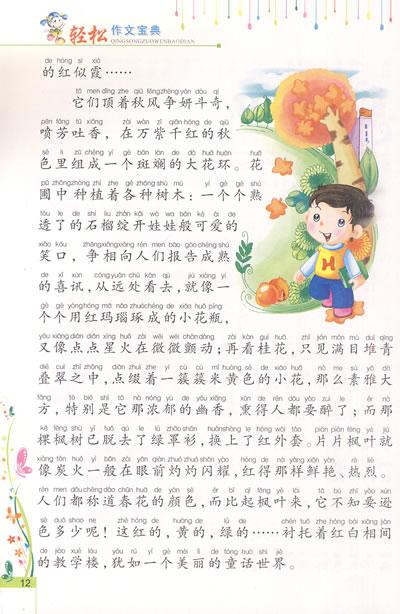 轻松 作文宝典
QINGSONGZUOWENBAODIAN
de hóng sì xiá
的红似霞……
tā men dǐng zhe qiū fēng zhēng yán dòu qí
它们顶着秋风争妍斗奇，
pēn fāng tǔ xiāng zài wàn zǐ qiān hóng de qiū
喷芳吐香，在万紫千红的秋
sè lǐ zǔ chéng yí gè bān lán de dà huā huán huā
色里组成一个斑斓的大花环。花
pǔ zhōng zhòng zhí zhe gè zhǒng shù mù yí gè gè shú
圃中种植着各种树木：一个个熟
tòu le de shí liu zhàn kāi wá wa bān kě ài de
透了的石榴绽开娃娃般可爱的
xiào kǒu zhēng xiāng xiàng rén men bào gào chéng shú
笑口，争相向人们报告成熟
de xǐ xùn cóng yuǎn chù kàn qù jiù xiàng yí
的喜讯，从远处看去，就像一
gè gè yòng hóng mǎ nǎo zhuó chéng de xiǎo huā píng
个个用红玛瑙琢成的小花瓶，
yòu xiàng diǎn diǎn xīng huǒ zài wēi wēi chàn dòng zài kàn guì huā zhǐ jiàn mǎn mù duī qīng
又像点点星火在微微颤动；再看桂花，只见满目堆青
dié cuì zhī zhōng diǎn zhuì zhe yí cù cù mǐ huáng sè de xiǎo huā nà me sù yǎ dà
叠翠之中，点缀着一簇簇米黄色的小花，那么素雅大
fāng tè bié shì tā nà nóng yù de yōu xiāng xūn de rén dōu yào zuì le ér nà
方，特别是它那浓郁的幽香，熏得人都要醉了；而那
kē fēng shù yǐ tuō qù le lǜ zhào shān huàn shàng le hóng wài tào piàn piàn fēng yè jiù
棵枫树已脱去了绿罩衫，换上了红外套。片片枫叶就
xiàng tàn huǒ yì bān zài yǎn qián zhuó zhuó shǎn yào hóng de nà yàng xiān yàn rè liè
像炭火一般在眼前灼灼闪耀，红得那样鲜艳、热烈。
rén men dōu chēng dào chūn huā de yán sè ér bǐ qǐ fēng yè lái tā bù zhī yào xùn
人们都称道春花的颜色，而比起枫叶来，它不知要逊
sè duō shao ne zhè hóng de huáng de lǜ de chèn tuō zhe hóng bái xiāng jiàn
色多少呢！这红的，黄的，绿的……衬托着红白相间
de jiào xué lóu yóu rú yí gè měi lì de tóng huà shì jiè
的教学楼，犹如一个美丽的童话世界。
12